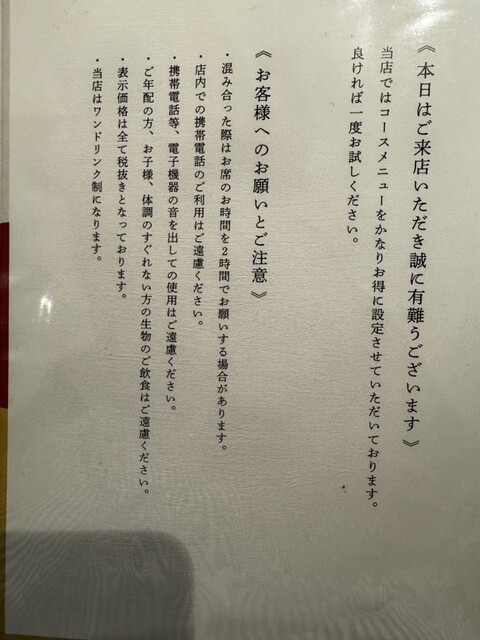 《本日はご来店いただき誠に有難うございます》
当店ではコースメニューをかなりお得に設定させていただいております。
良ければ一度お試しください。
《お客様へのお願いとご注意》
・混み合った際はお席のお時間を2時間でお願いする場合があります。
・店内での携帯電話のご利用はご遠慮ください。
・携帯電話等、電子機器の音を出しての使用はご遠慮ください。
・ご年配の方、お子様、体調のすぐれない方の生物のご飲食はご遠慮ください。
・表示価格は全て税抜きとなっております。
・当店はワンドリンク制になります。